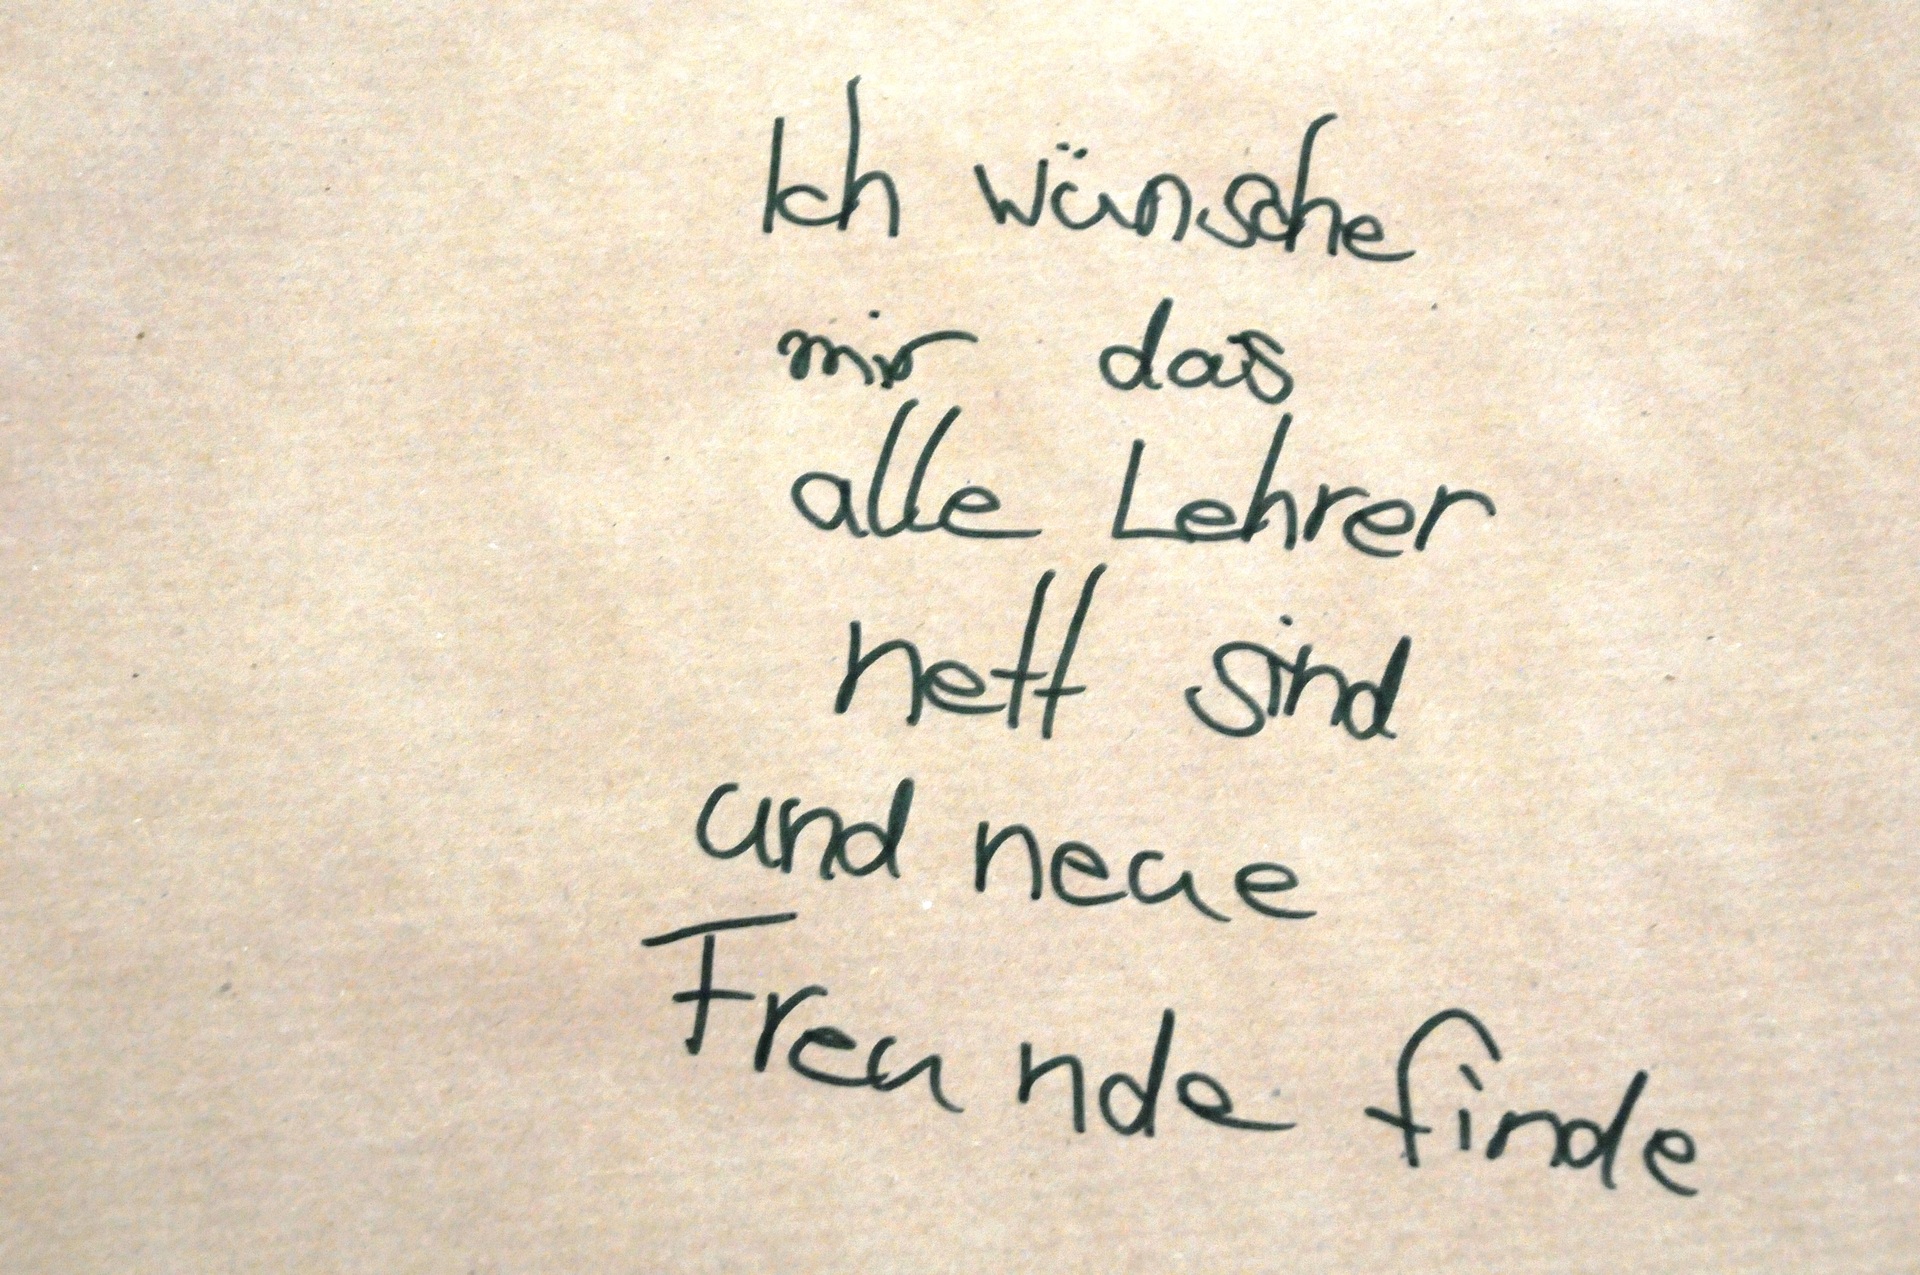 Ich wünsche
mir das
alle Lehrer
nett sind
und neue
Freunde finde